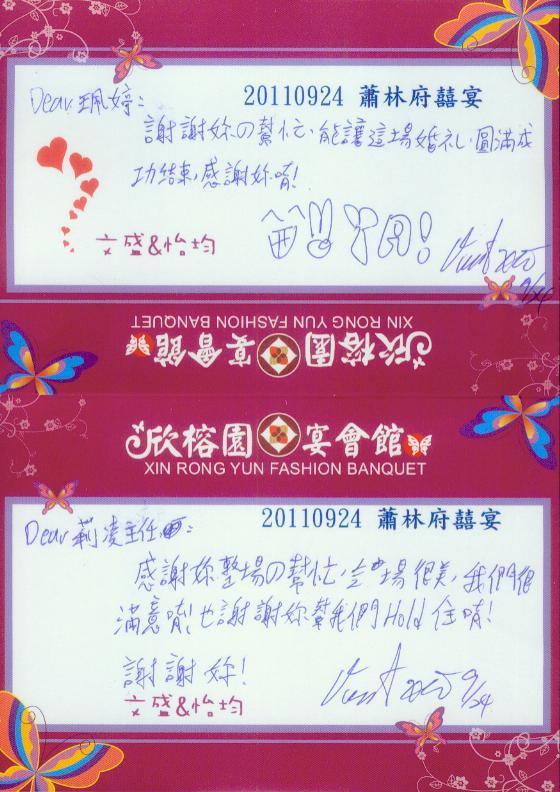 Dear 珮婷:
20110924 蕭林府囍宴
謝謝妳の幫忙，能讓這場婚礼，圓滿成
功結束，感謝妳唷!
文盛&怡均
9/24
XIN RONG YUN FASHION BANQUET
欣榕園 宴會館
欣榕園 宴會館
XIN RONG YUN FASHION BANQUET
Dear 莉淩主任:
20110924 蕭林府囍宴
感謝妳整場の幫忙，會場很美，我們很
滿意唷! 也謝謝妳幫我們Hold住唷!
謝謝妳!
文盛&怡均
9/24